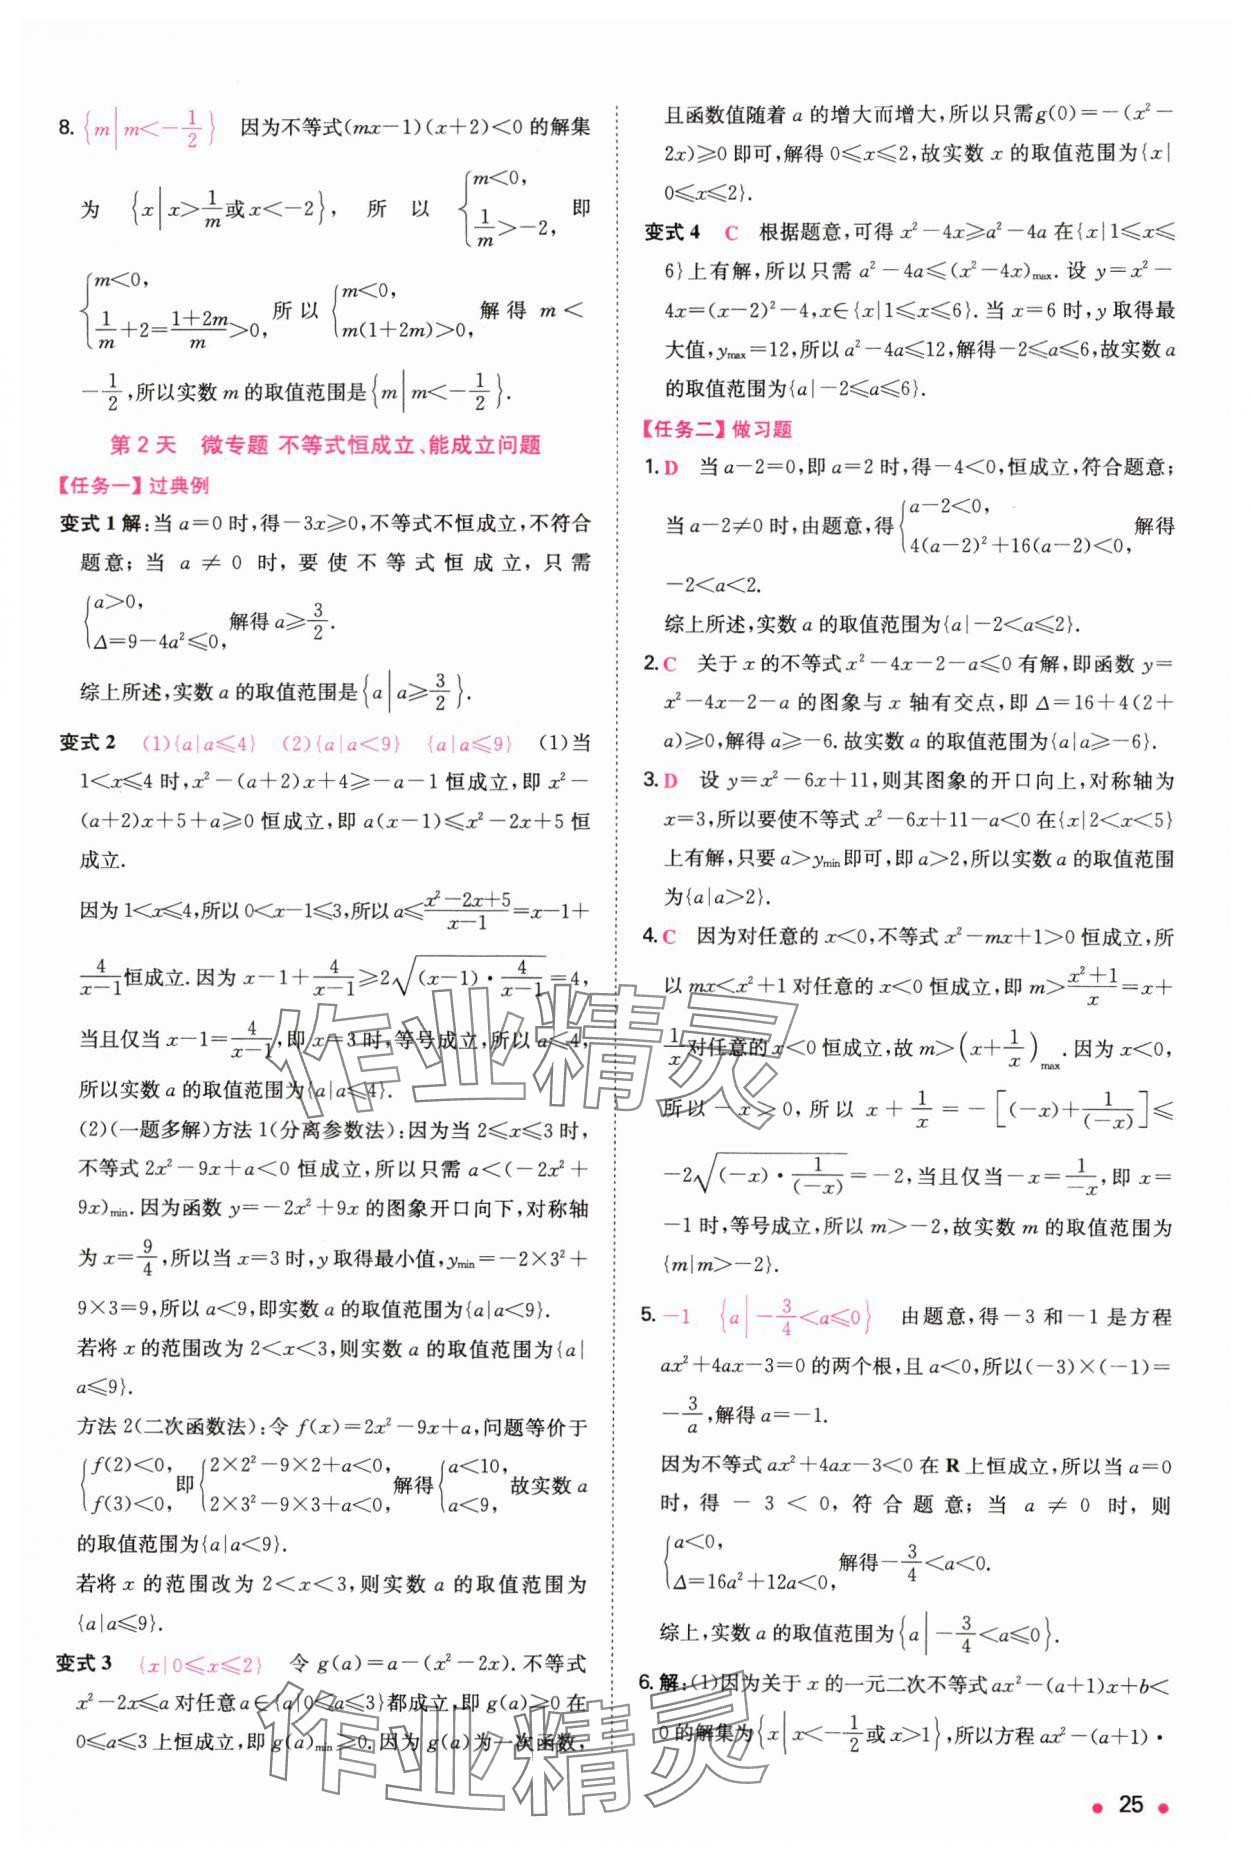 8. {m|m<-1/2} 因为不等式(mx-1)(x+2)<0的解集
为 {x|x>1/m或x<-2}, 所以 {m<0, 1/m>-2, 即
{m<0, 1/m+2=(1+2m)/m>0, 所以 {m<0, m(1+2m)>0, 解得 m<
-1/2,所以实数 m 的取值范围是{m|m<-1/2}.
第2天 微专题 不等式恒成立、能成立问题
【任务一】过典例
变式1 解:当 a=0 时,得-3x≥0,不等式不恒成立,不符合
题意;当 a≠0 时,要使不等式恒成立,只需
{a>0, Δ=9-4a²≤0, 解得 a≥3/2.
综上所述,实数 a 的取值范围是{a|a≥3/2}.
变式2 (1){a|a≤4} (2){a|a<9} {a|a≤9} (1)当
1<x≤4 时,x²-(a+2)x+4≥-a-1 恒成立,即 x²-
(a+2)x+5+a≥0 恒成立,即 a(x-1)≤x²-2x+5 恒
成立.
因为 1<x≤4,所以 0<x-1≤3,所以 a≤(x²-2x+5)/(x-1)=x-1+
4/(x-1)恒成立.因为 x-1+4/(x-1)≥2√((x-1)·4/(x-1))=4,
当且仅当 x-1=4/(x-1),即 x=3 时,等号成立,所以 a≤4,
所以实数 a 的取值范围为{a|a≤4}.
(2)(一题多解)方法1(分离参数法):因为当 2≤x≤3 时,
不等式 2x²-9x+a<0 恒成立,所以只需 a<(-2x²+
9x)min.因为函数 y=-2x²+9x 的图象开口向下,对称轴
为 x=9/4,所以当 x=3 时,y 取得最小值,ymin=-2×3²+
9×3=9,所以 a<9,即实数 a 的取值范围为{a|a<9}.
若将 x 的范围改为 2<x<3,则实数 a 的取值范围为{a|
a≤9}.
方法2(二次函数法):令 f(x)=2x²-9x+a,问题等价于
{f(2)<0, f(3)<0, 即{2×2²-9×2+a<0, 2×3²-9×3+a<0, 解得{a<10, a<9, 故实数 a
的取值范围为{a|a<9}.
若将 x 的范围改为 2<x<3,则实数 a 的取值范围为
{a|a≤9}.
变式3 {x|0≤x≤2} 令 g(a)=a-(x²-2x).不等式
x²-2x≤a 对任意a∈{a|0≤a≤3}都成立,即 g(a)≥0 在
0≤a≤3 上恒成立,即 g(a)min≥0.因为 g(a)为一次函数,
且函数值随着 a 的增大而增大,所以只需g(0)=-(x²-
2x)≥0 即可,解得 0≤x≤2,故实数 x 的取值范围为{x|
0≤x≤2}.
变式4 C 根据题意,可得 x²-4x≥a²-4a 在{x|1≤x≤
6}上有解,所以只需 a²-4a≤(x²-4x)max.设 y=x²-
4x=(x-2)²-4,x∈{x|1≤x≤6}.当 x=6 时,y 取得最
大值,ymax=12,所以 a²-4a≤12,解得-2≤a≤6,故实数 a
的取值范围为{a|-2≤a≤6}.
【任务二】做习题
1. D 当 a-2=0,即 a=2 时,得-4<0,恒成立,符合题意;
当 a-2≠0 时,由题意,得{a-2<0, 4(a-2)²+16(a-2)<0, 解得
-2<a<2.
综上所述,实数 a 的取值范围为{a|-2<a≤2}.
2. C 关于 x 的不等式 x²-4x-2-a≤0 有解,即函数 y=
x²-4x-2-a 的图象与 x 轴有交点,即 Δ=16+4(2+
a)≥0,解得 a≥-6.故实数 a 的取值范围为{a|a≥-6}.
3. D 设 y=x²-6x+11,则其图象的开口向上,对称轴为
x=3,所以要使不等式 x²-6x+11-a<0 在{x|2<x<5}
上有解,只要 a>ymin即可,即 a>2,所以实数 a 的取值范围
为{a|a>2}.
4. C 因为对任意的 x<0,不等式 x²-mx+1>0 恒成立,所
以 mx<x²+1 对任意的 x<0 恒成立,即 m>(x²+1)/x=x+
1/x对任意的 x<0 恒成立,故 m>(x+1/x)max.因为 x<0,
所以-x>0,所以 x+1/x=-[(-x)+1/(-x)]≤
-2√((-x)·1/(-x))=-2,当且仅当-x=1/-x,即 x=
-1 时,等号成立,所以 m>-2,故实数 m 的取值范围为
{m|m>-2}.
5. -1 {a|-3/4<a≤0} 由题意,得-3 和-1 是方程
ax²+4ax-3=0 的两个根,且 a<0,所以(-3)×(-1)=
-3/a,解得 a=-1.
因为不等式 ax²+4ax-3<0 在 R 上恒成立,所以当 a=0
时,得-3<0,符合题意;当 a≠0 时,则
{a<0, Δ=16a²+12a<0, 解得-3/4<a<0.
综上,实数 a 的取值范围为{a|-3/4<a≤0}.
6. 解:(1)因为关于 x 的一元二次不等式 ax²-(a+1)x+b<
0的解集为{x|x<-1/2或x>1},所以方程 ax²-(a+1)·
25
作业精灵
作业精灵